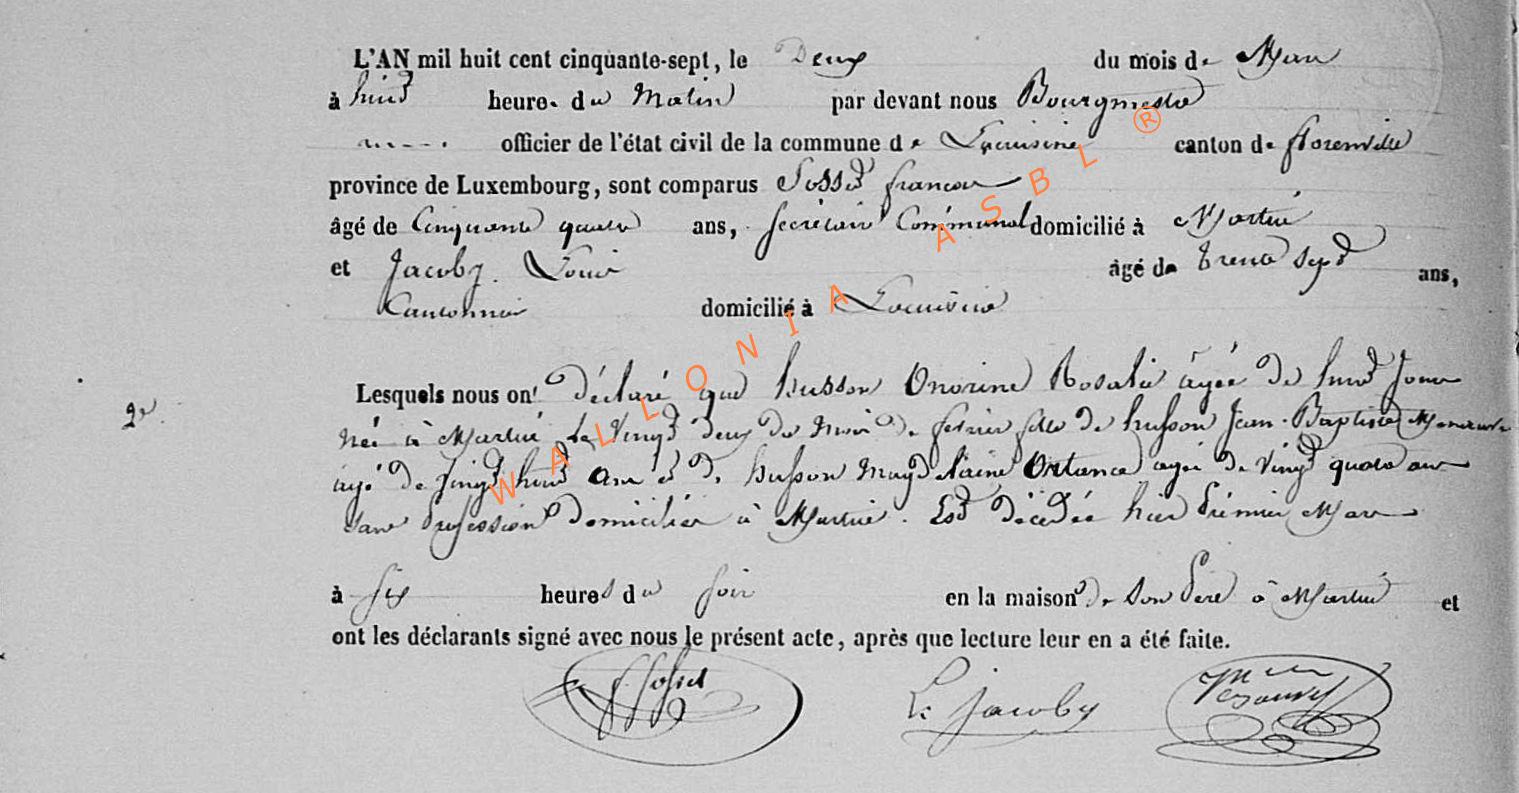 L'AN mil huit cent cinquante-sept, le Deux du mois de Mars
à huit heures du Matin par devant nous Bourgmestre
officier de l'état civil de la commune de Lacuisine canton de florenville
province de Luxembourg, sont comparus Fossé françois
âgé de Cinquante quatre ans, secrétair Communal domicilié à Martué
et Jacoby Louis âgé de trente sept ans,
Cantonnier domicilié à Lacuisine
Lesquels nous ont déclaré que husson Onorine Rosalie âgée de huit Jour
2e
née à Martué le Vingt deux du Mois de fevrier fille de husson Jean-Baptiste
agé de Vingt huit ans et de husson Magdelaine Ortance agée de Vingt quatre ans
sans profession domiciliés à Martué. Est décédée hier premier Mars
à six heures du soir en la maison de son père à Martué et
ont les déclarants signé avec nous le présent acte, après que lecture leur en a été faite.
L. Jacoby
WALLONIA ASBL ®